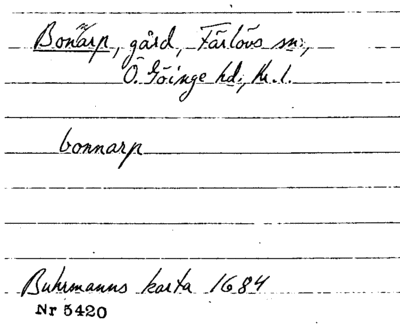 Bonarp, gård, Färlövs sn.,
Ö. Göinge hd., Kr. l.
bonnarp
Buhrmanns karta 1684
Nr 5420